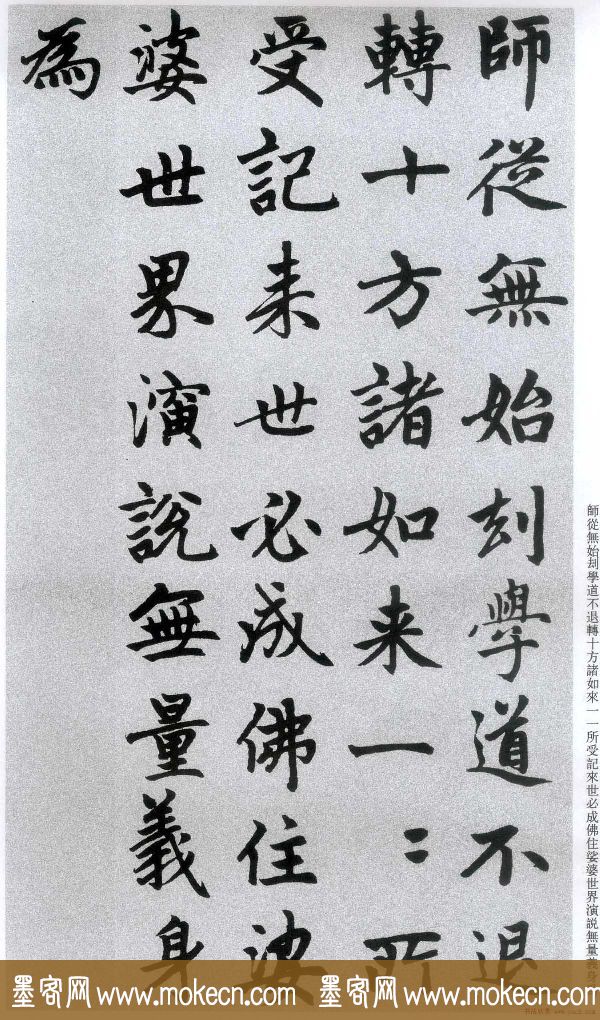 師從無始刼學道不退
轉十方諸如来一二所
受記来世必成佛住娑
婆世界演說無量義身
為
師從無始刼學道不退轉十方諸如來一一所受記來世必成佛住娑婆世界演說無量義身
墨客网 www.mokecn.com 墨客网 www.mokecn.com